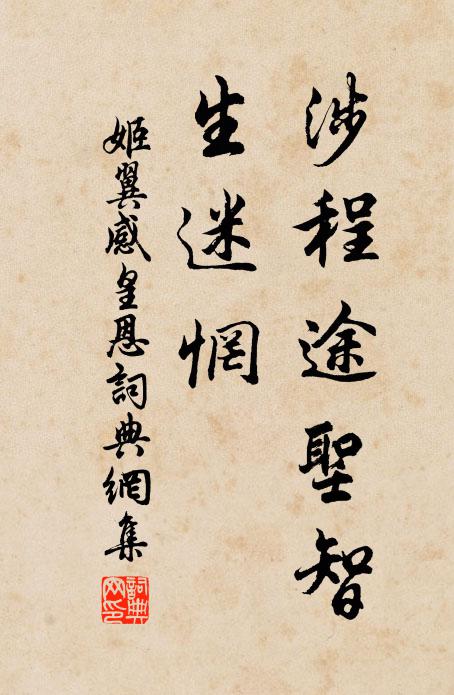 涉程途聖智
生迷惘
姬翼感皇恩詞典網集
詞典網印